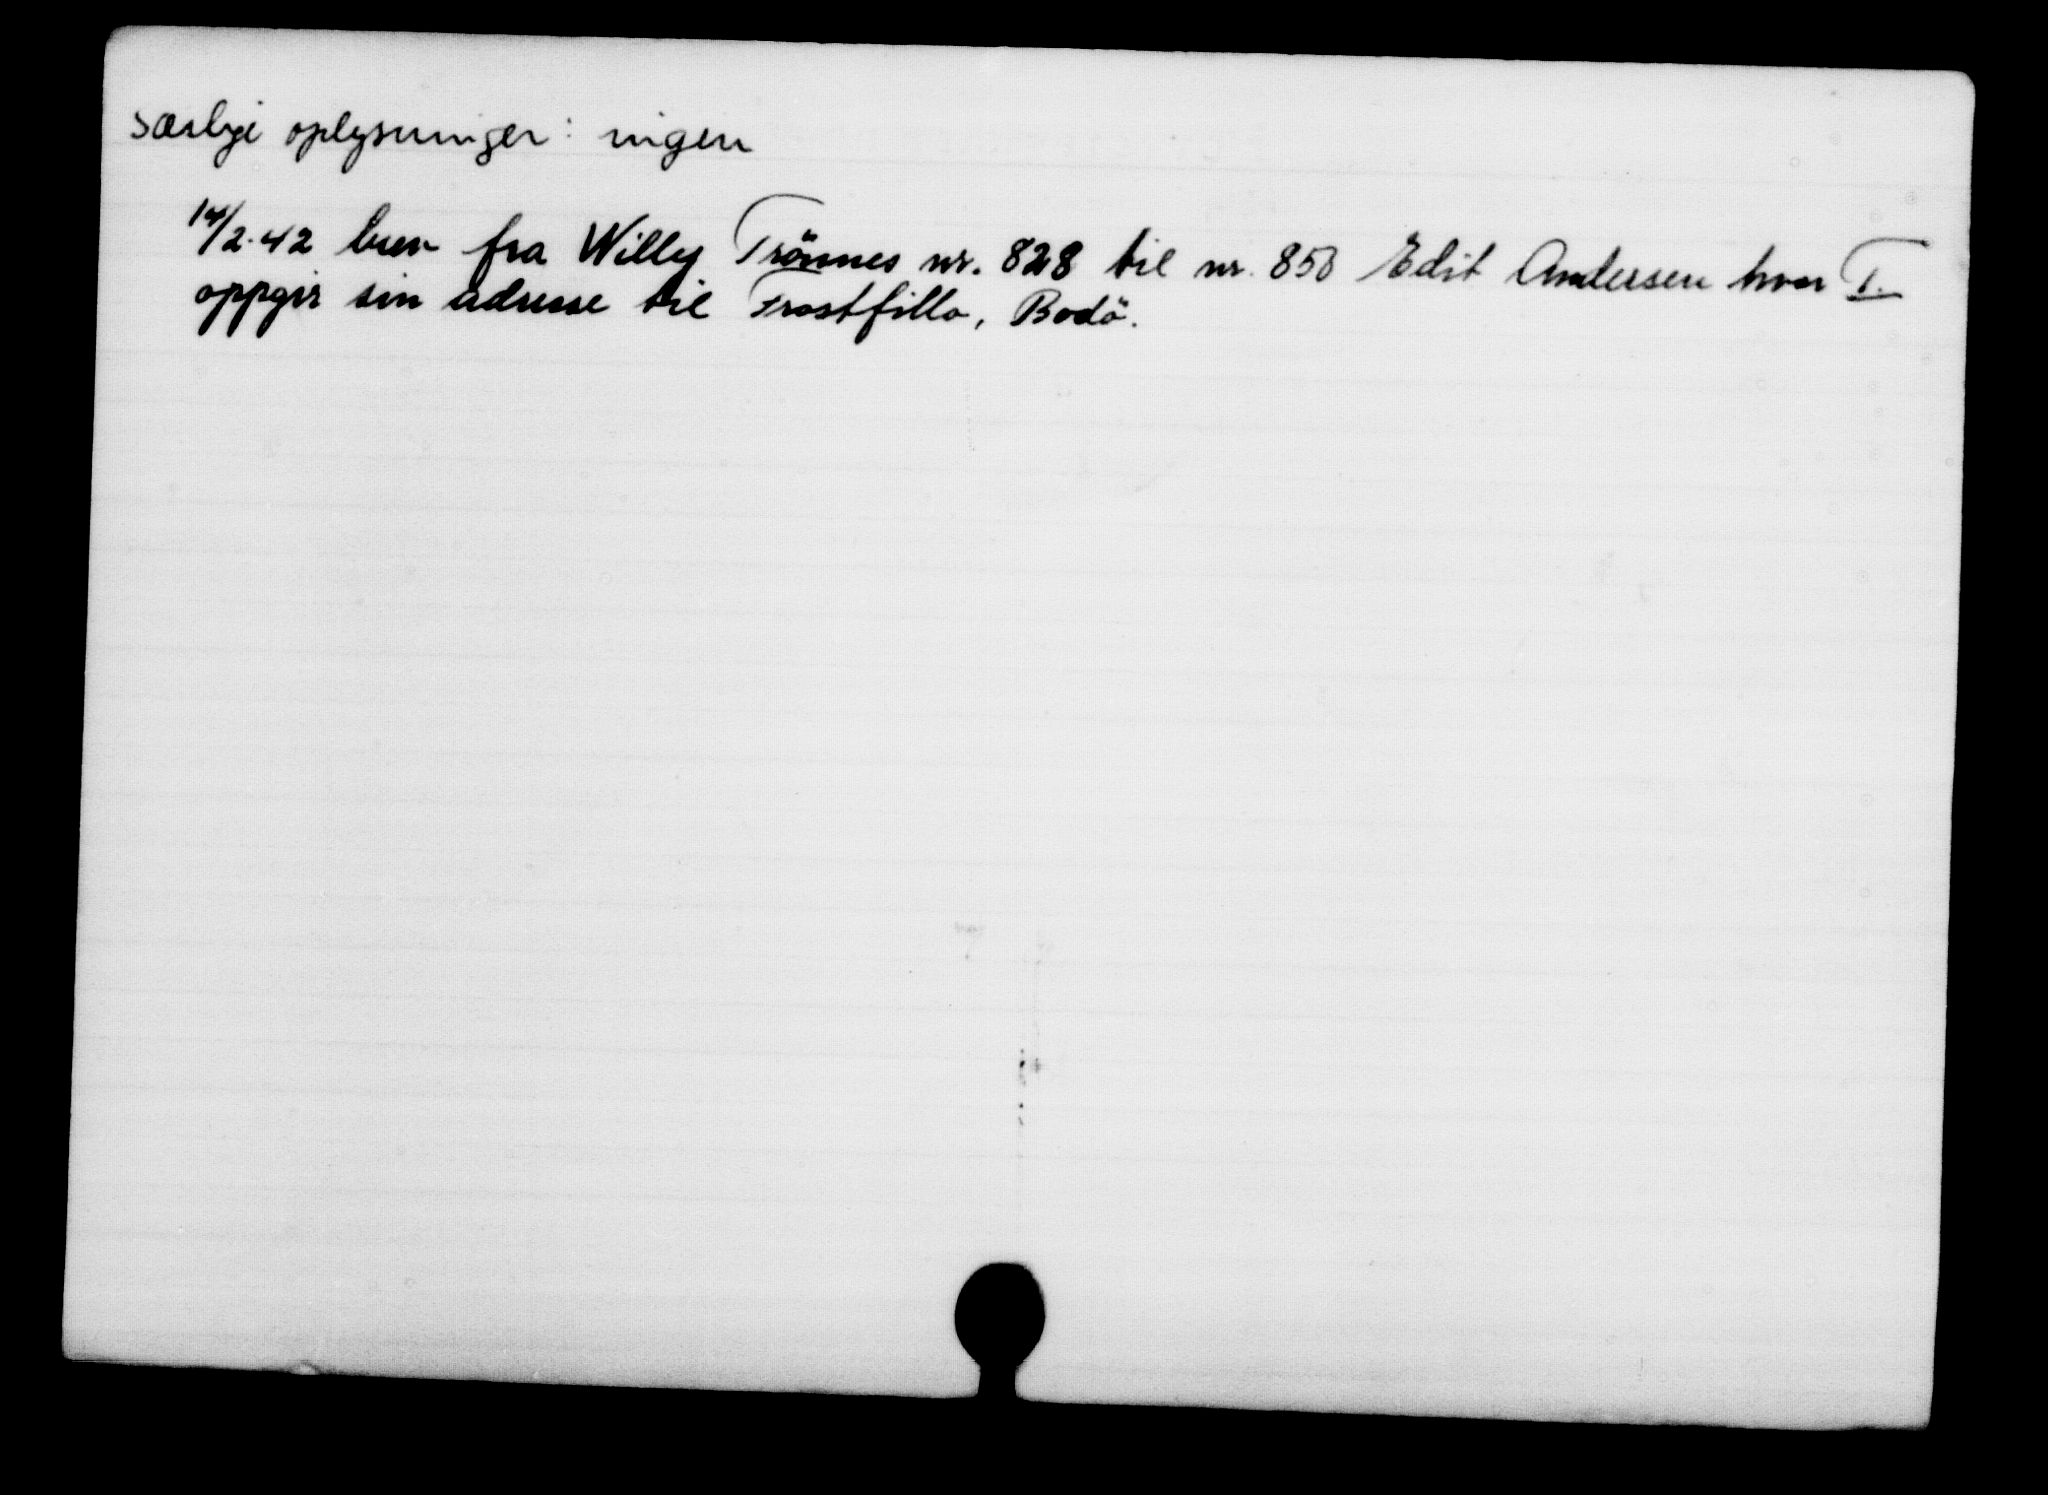 Særlige oplysninger: ingen
14/2.42 brev fra Willy Trönnes nr. 828 til nr. 850 Edit Andersen hvor T.
oppgir sin adresse til Frostfilla, Bodö.